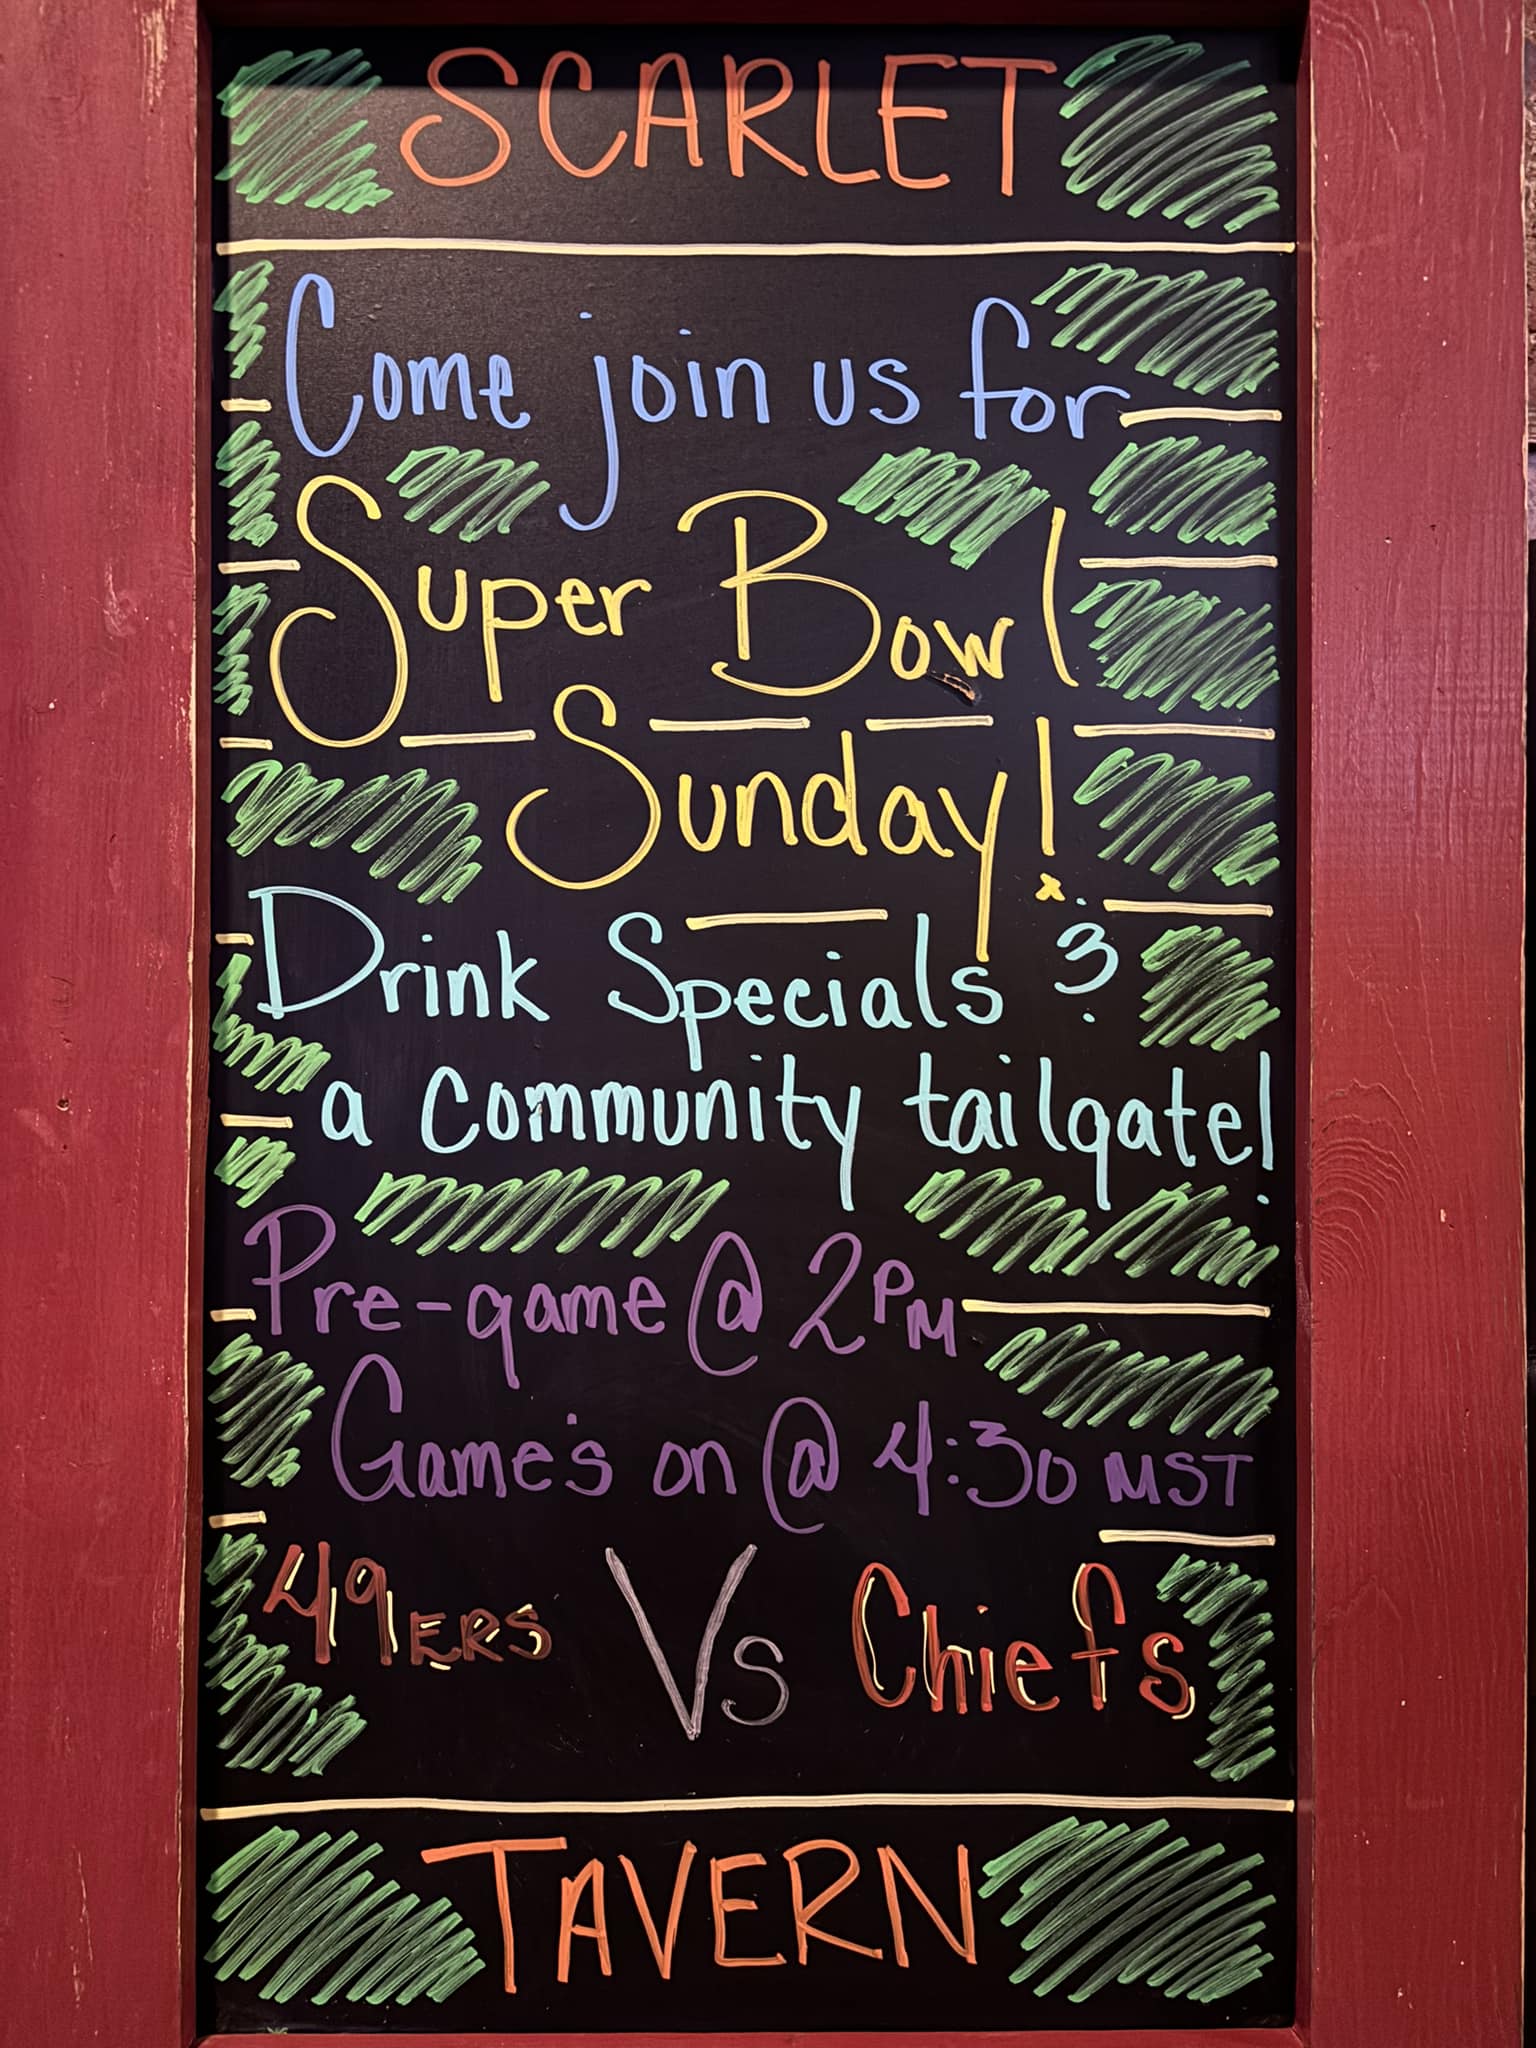 SCARLET
Come join us for
Super Bowl
Sunday!
Drink Specials &
a community tailgate!
Pre-game @ 2PM
Game's on @ 4:30 MST
49ERS Vs Chiefs
TAVERN